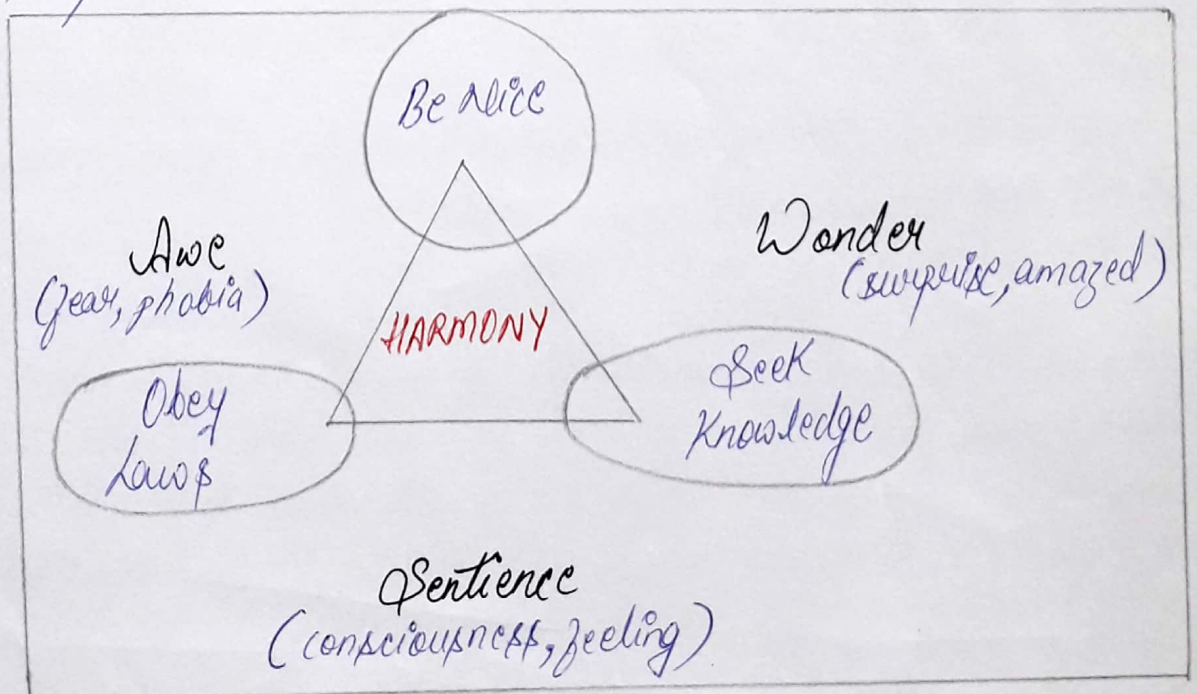 Be Nice
Awe
(fear, phobia)
Wonder
(surprise, amazed)
HARMONY
Obey
Laws
Seek
Knowledge
Sentience
(consciousness, feeling)